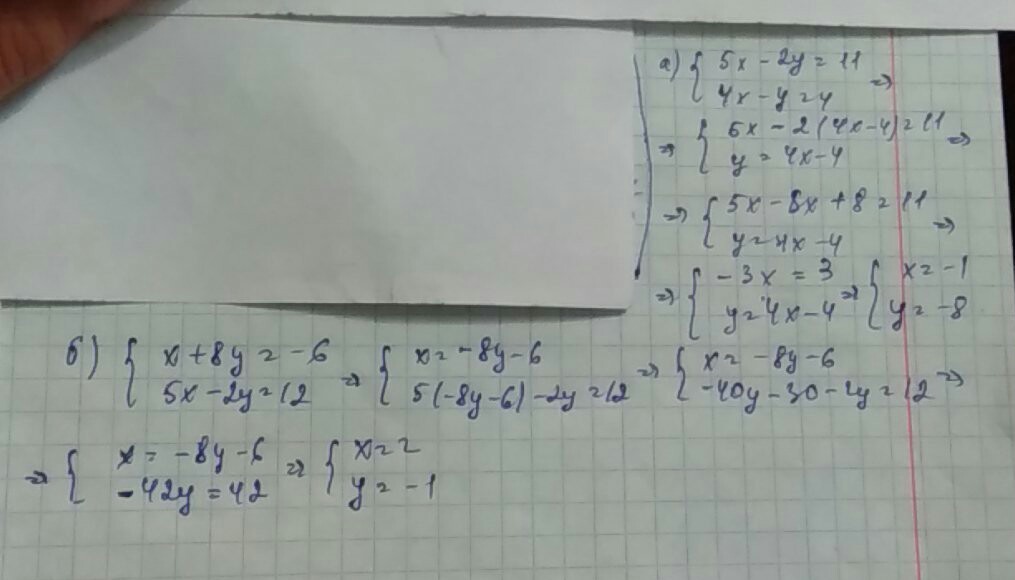 а) { 5x - 2y = 11
4x - y = 4 ⇒
⇒ { 5x - 2(4x-4) = 11
y = 4x-4 ⇒
⇒ { 5x - 8x + 8 = 11
y = 4x - 4 ⇒
⇒ { -3x = 3
y = 4x - 4 ⇒ { x = -1
y = -8
б) { x + 8y = -6
5x - 2y = 12 ⇒ { x = -8y - 6
5(-8y-6) - 2y = 12 ⇒ { x = -8y - 6
-40y - 30 - 2y = 12 ⇒
⇒ { x = -8y - 6
-42y = 42 ⇒ { x = 2
y = -1